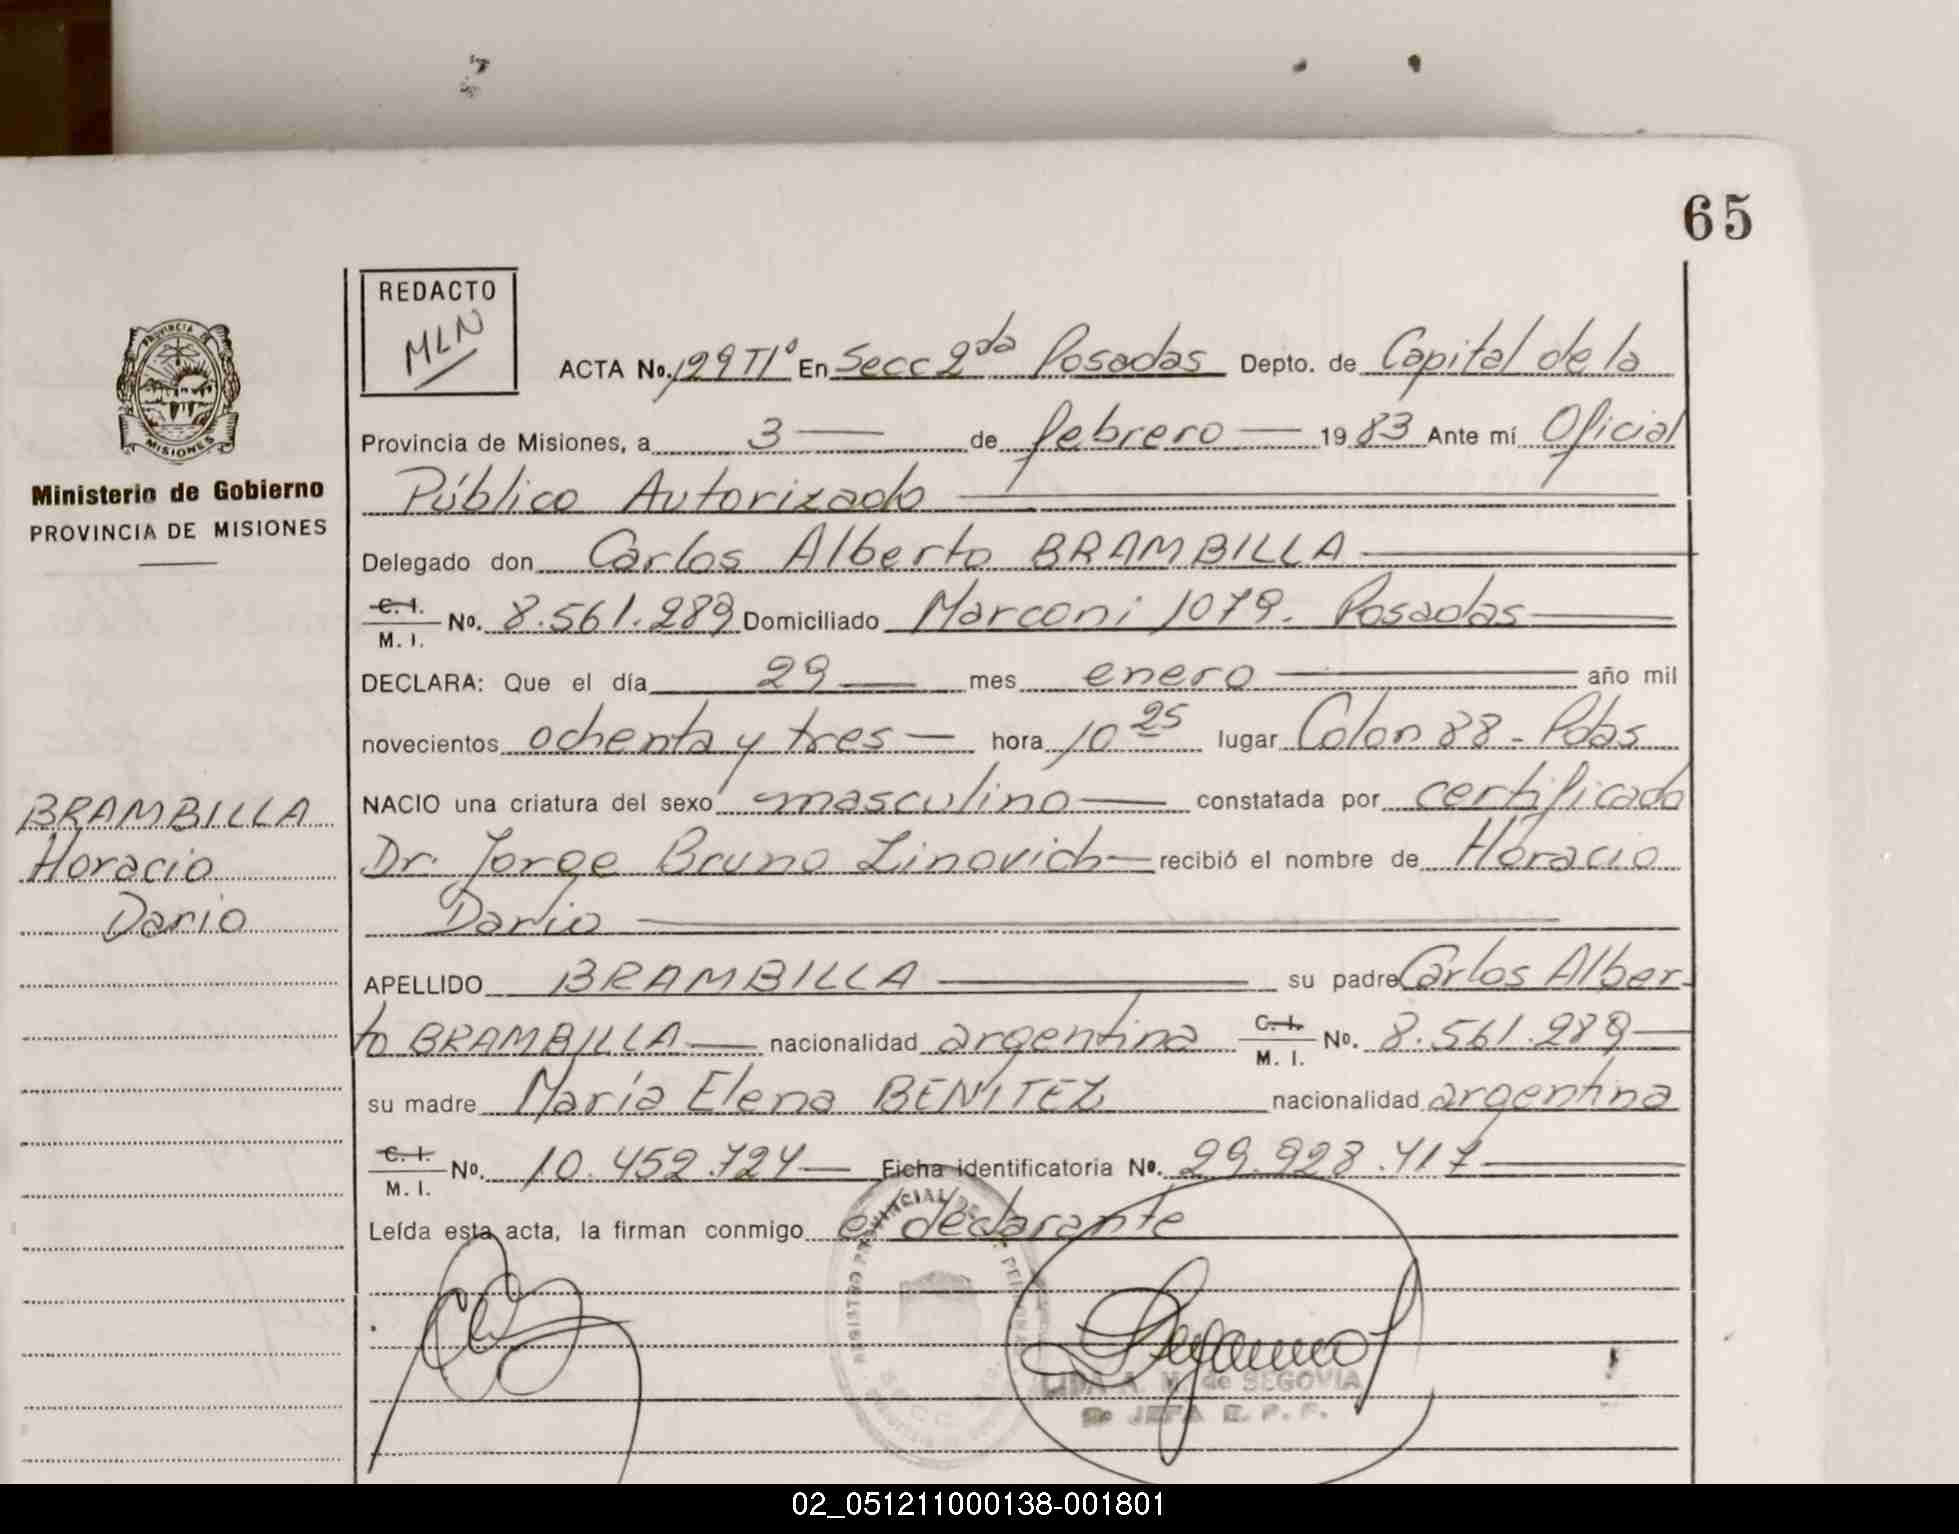 65
REDACTO
MLN
ACTA No. 129 TIº En Secc 2da Posadas Depto. de Capital de la
Provincia de Misiones, a 3 — de febrero — 1983 Ante mí Oficial
Público Autorizado
Delegado don Carlos Alberto BRAMBILLA
C. I.
M. I. No. 8.561.289 Domiciliado Marconi 1079. Posadas
DECLARA: Que el día 29 — mes enero — año mil
novecientos ochenta y tres — hora 10 25 lugar Colon 88 - Pdas
NACIO una criatura del sexo masculino — constatada por certificado
Dr. Jorge Bruno Linovich — recibió el nombre de Horacio
Dario
APELLIDO BRAMBILLA — su padre Carlos Alber-
to BRAMBILLA — nacionalidad argentina C. I.
M. I. No. 8.561.289 —
su madre María Elena BENITEZ nacionalidad argentina
C. I.
M. I. No. 10.452.724 — Ficha identificatoria No. 29.928.417
Leída esta acta, la firman conmigo el declarante
LIDA A. M. de SEGOVIA
JEFA E. P. F.
PROVINCIA DE
MISIONES
Ministerio de Gobierno
PROVINCIA DE MISIONES
BRAMBILLA
Horacio
Dario
REGISTRO PROVINCIAL DE
02_051211000138-001801